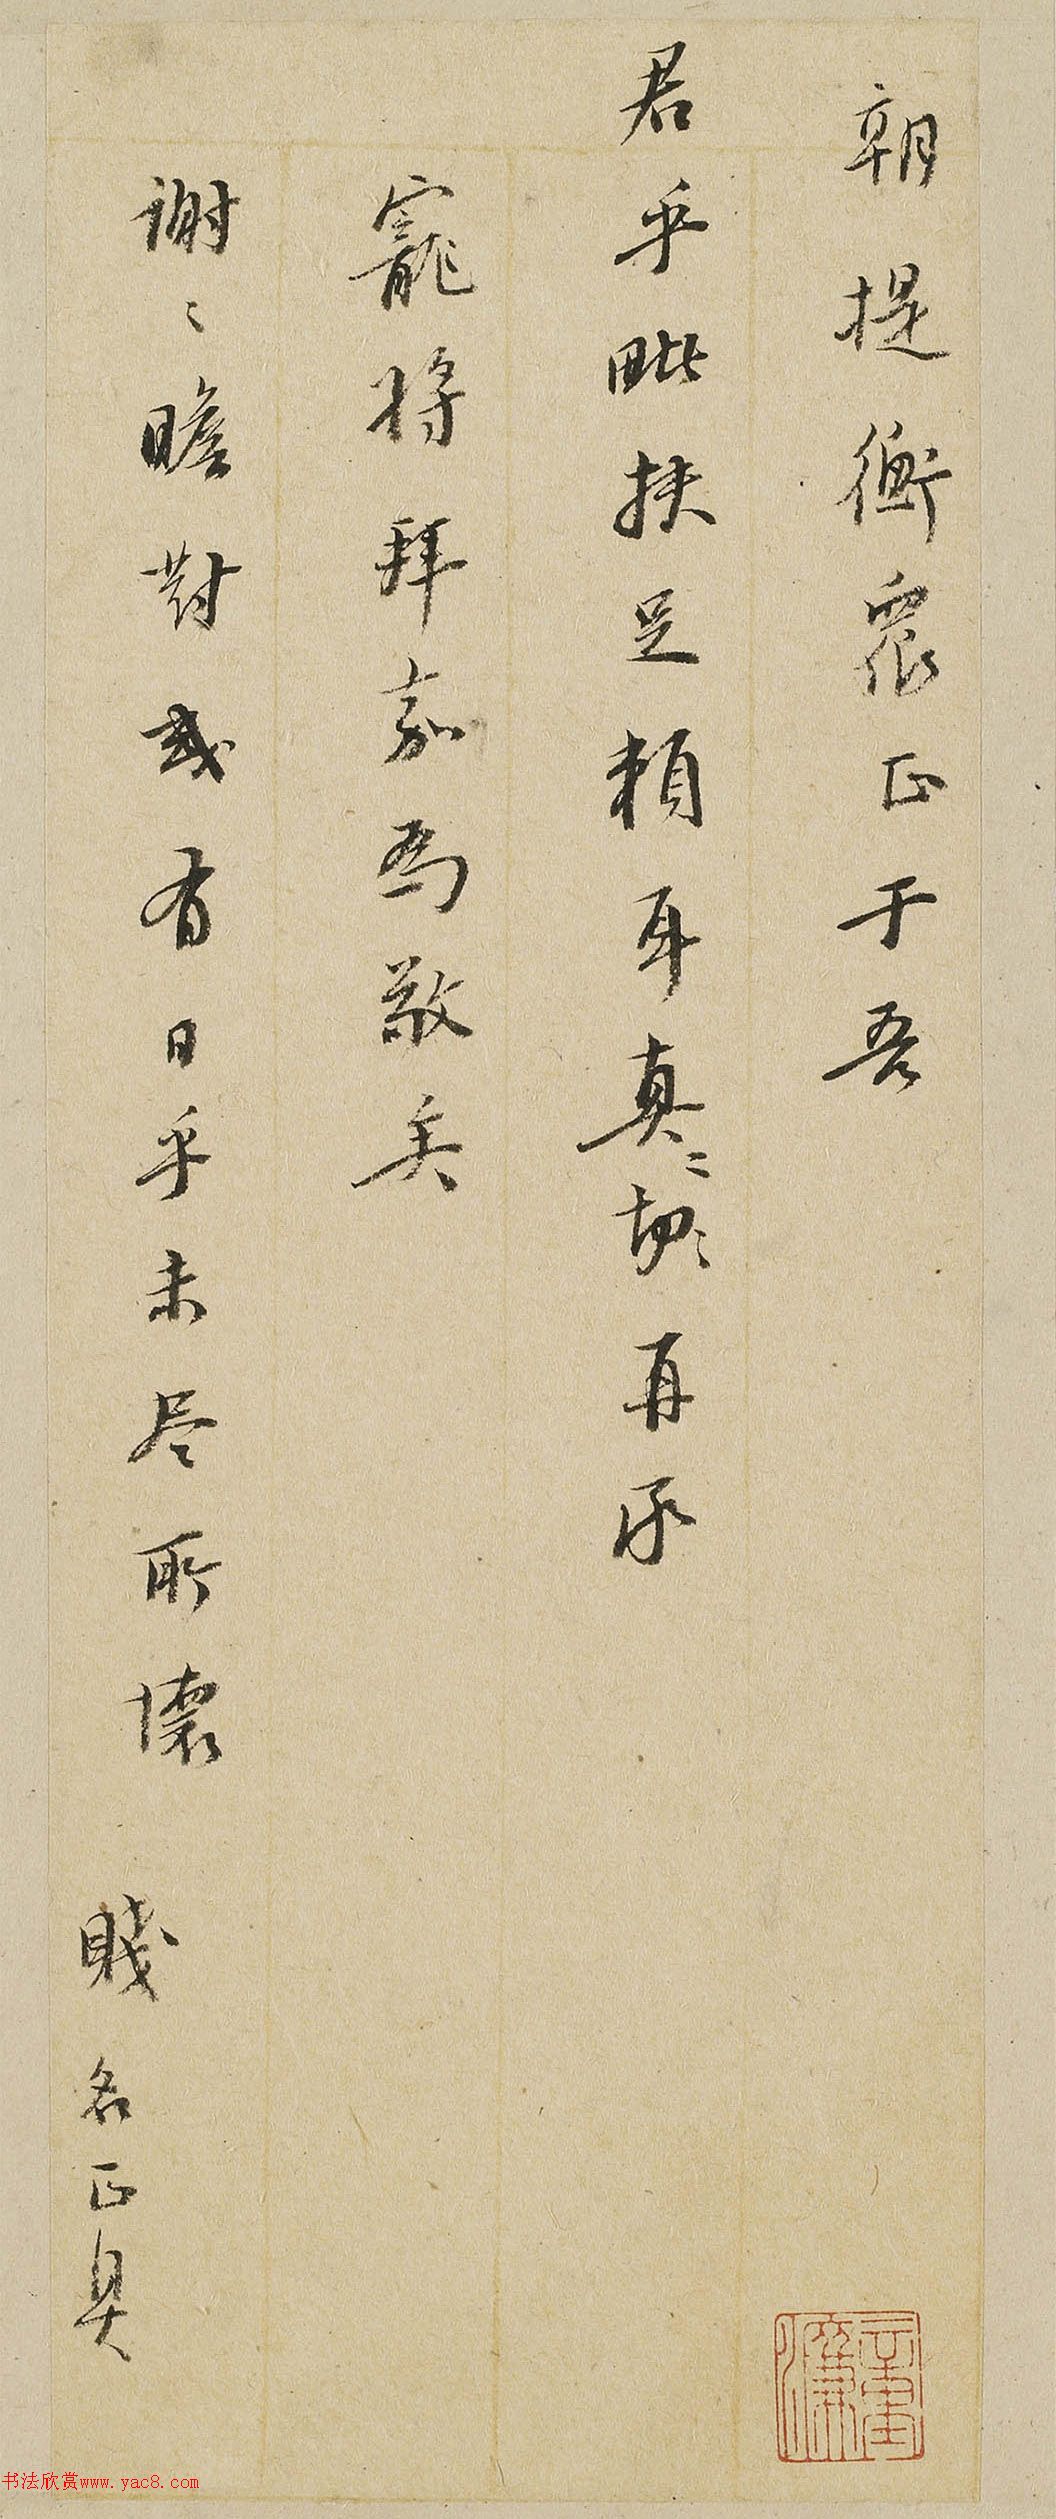 朝提衡眾正于吾
君乎毗扶足賴耳真真切切再承
寵将拜嘉為敬矣
謝謝瞻對或有日乎未尽所懷
賤名正具
书法欣赏www.yac8.com